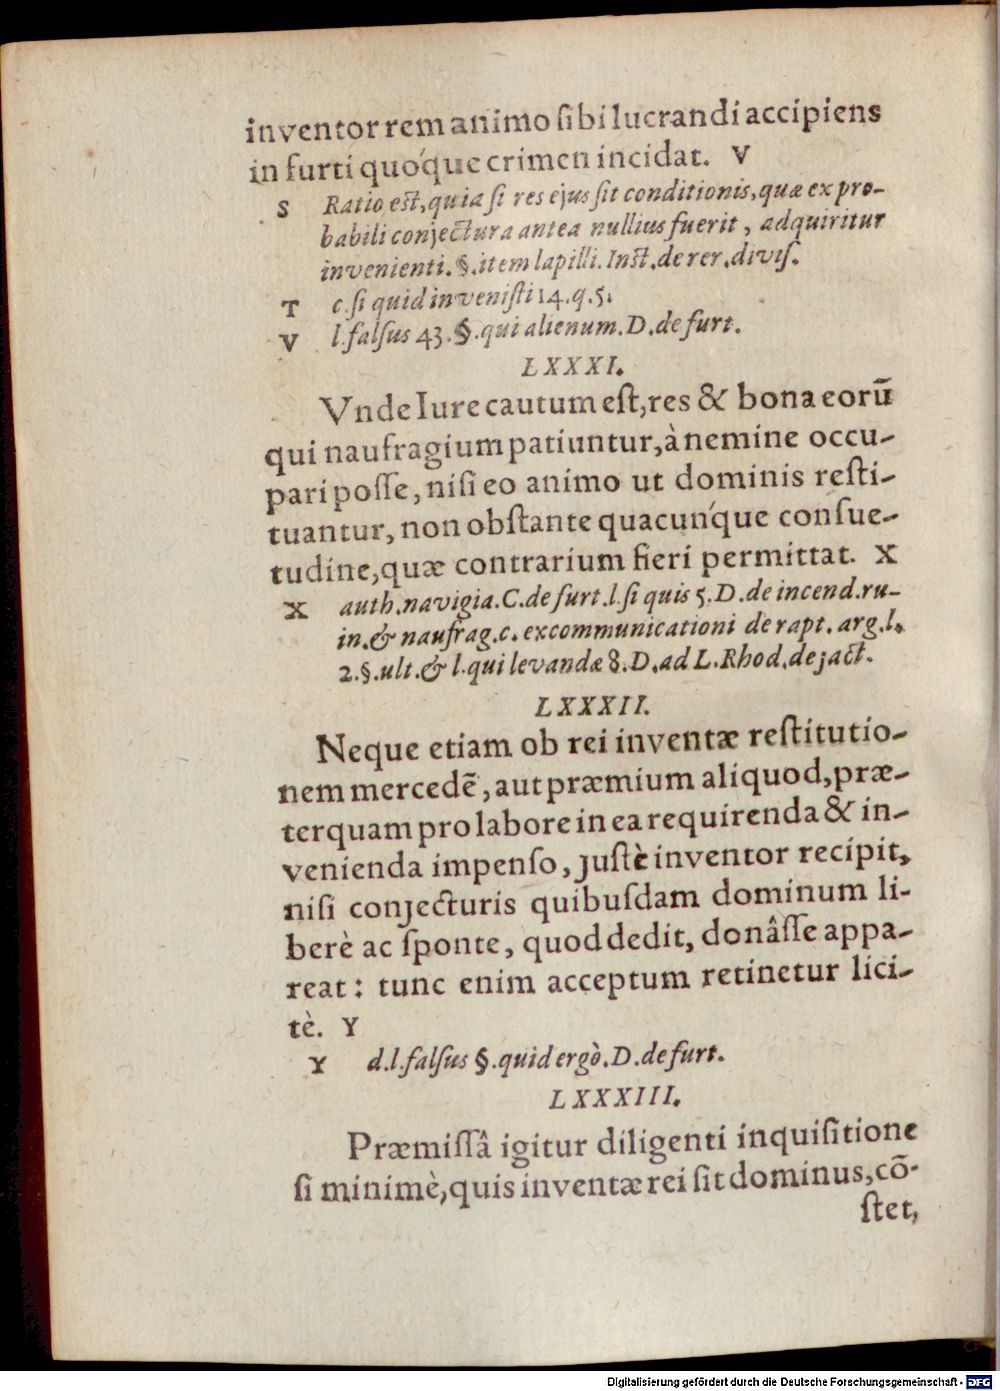 inventor rem animo ſibi lucrandi accipiens
in furti quóque crimen incidat. V
S Ratio est, quia ſi res ejus ſit conditionis, quæ ex pro-
babili conjectura antea nullius fuerit, adquiritur
invenienti. §. item lapilli. Inst. de rer. diviſ.
T c. ſi quid inveniſti 14. q. 5.
V l. falſus 43. §. qui alienum. D. de furt.
LXXXI.
Vnde Iure cautum eſt, res & bona eorū
qui naufragium patiuntur, à nemine occu-
pari poſſe, niſi eo animo ut dominis reſti-
tuantur, non obſtante quacunq́ue conſue-
tudine, quæ contrarium fieri permittat. X
X auth. navigia. C. de furt. l. ſi quis 5. D. de incend. ru-
in. & naufrag. c. excommunicationi de rapt. arg. l.
2. §. ult. & l. qui levandæ 8. D. ad L. Rhod. de jact.
LXXXII.
Neque etiam ob rei inventæ reſtitutio-
nem mercedē, aut præmium aliquod, præ-
terquam pro labore in ea requirenda & in-
venienda impenſo, juſtè inventor recipit,
niſi conjecturis quibuſdam dominum li-
berè ac ſponte, quod dedit, donâſſe appa-
reat: tunc enim acceptum retinetur lici-
tè. Y
Y d. l. falſus §. quid ergò. D. de furt.
LXXXIII.
Præmiſſâ igitur diligenti inquiſitione
ſi minimè, quis inventæ rei ſit dominus, cō-
ſtet,
Digitalisierung gefördert durch die Deutsche Forschungsgemeinschaft - DFG